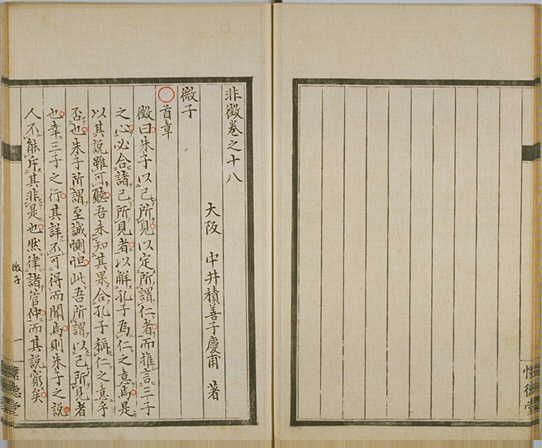 非徴巻之十八
大阪 中井積善子慶甫 著
微子
首章
徴曰朱子以己所見以定所謂仁者而推言三子
之心必合諸己所見者以解孔子為仁之意焉是
以其説雖可聽吾未知其果合孔子稱仁之意乎
否也朱子所謂至誠惻怛此吾所謂以己所見者
也蓋三子之行其詳不可得而聞焉則朱子之説
人不能斥其非是也然律諸管仲而其説窮矣
微子
一
懐徳堂